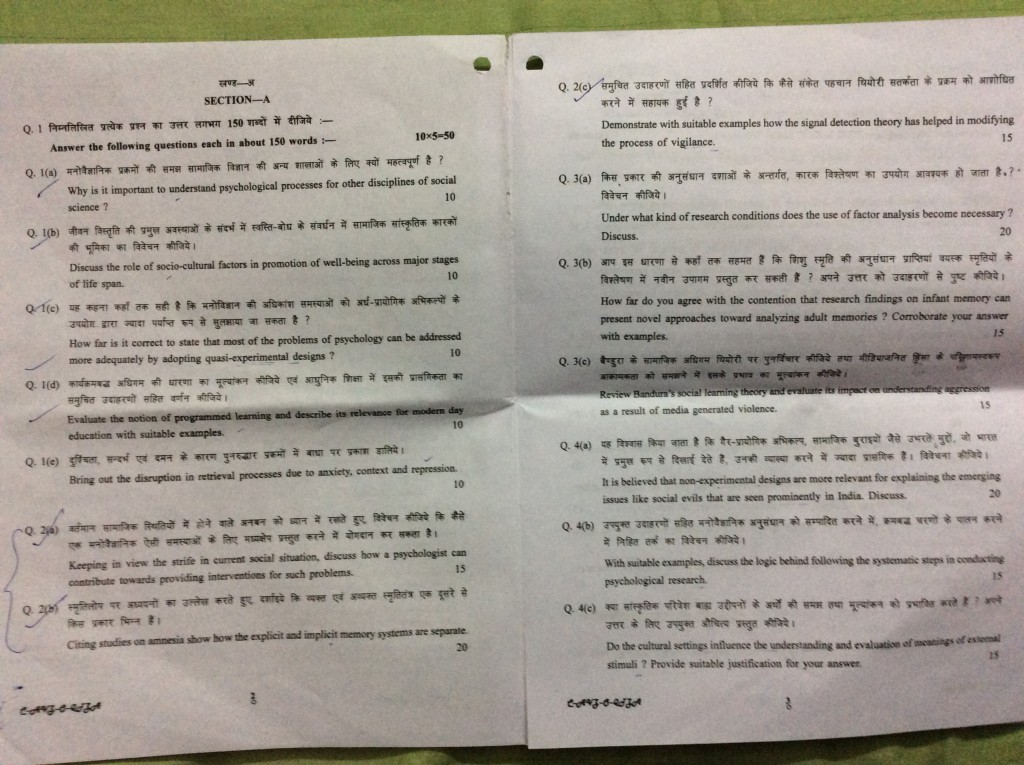 खण्ड—अ
SECTION—A
Q. 1 निम्नलिखित प्रत्येक प्रश्न का उत्तर लगभग 150 शब्दों में दीजिये :—
Answer the following questions each in about 150 words :— 10×5=50
Q. 1(a) मनोवैज्ञानिक प्रक्रमों की समझ सामाजिक विज्ञान की अन्य शाखाओं के लिए क्यों महत्वपूर्ण है ?
Why is it important to understand psychological processes for other disciplines of social
science ? 10
Q. 1(b) जीवन विस्तृति की प्रमुख अवस्थाओं के संदर्भ में स्वस्ति-बोध के संवर्धन में सामाजिक सांस्कृतिक कारकों
की भूमिका का विवेचन कीजिये।
Discuss the role of socio-cultural factors in promotion of well-being across major stages
of life span. 10
Q. 1(c) यह कहना कहाँ तक सही है कि मनोविज्ञान की अधिकांश समस्याओं को अर्ध-प्रायोगिक अभिकल्पों के
उपयोग द्वारा ज्यादा पर्याप्त रूप से सुलझाया जा सकता है ?
How far is it correct to state that most of the problems of psychology can be addressed
more adequately by adopting quasi-experimental designs ? 10
Q. 1(d) कार्यक्रमबद्ध अधिगम की धारणा का मूल्यांकन कीजिये एवं आधुनिक शिक्षा में इसकी प्रासंगिकता का
समुचित उदाहरणों सहित वर्णन कीजिये।
Evaluate the notion of programmed learning and describe its relevance for modern day
education with suitable examples. 10
Q. 1(e) दुश्चिंता, सन्दर्भ एवं दमन के कारण पुनरुद्धार प्रक्रमों में बाधा पर प्रकाश डालिये।
Bring out the disruption in retrieval processes due to anxiety, context and repression.
10
Q. 2(a) वर्तमान सामाजिक स्थितियों में होने वाले अनबन को ध्यान में रखते हुए, विवेचन कीजिये कि कैसे
एक मनोवैज्ञानिक ऐसी समस्याओं के लिए मध्यक्षेप प्रस्तुत करने में योगदान कर सकता है।
Keeping in view the strife in current social situation, discuss how a psychologist can
contribute towards providing interventions for such problems. 15
Q. 2(b) स्मृतिलोप पर अध्ययनों का उल्लेख करते हुए, दर्शाइये कि व्यक्त एवं अव्यक्त स्मृतितंत्र एक दूसरे से
किस प्रकार भिन्न हैं।
Citing studies on amnesia show how the explicit and implicit memory systems are separate.
20
2
Q. 2(c) समुचित उदाहरणों सहित प्रदर्शित कीजिये कि कैसे संकेत पहचान थियोरी सतर्कता के प्रक्रम को आशोधित
करने में सहायक हुई है ?
Demonstrate with suitable examples how the signal detection theory has helped in modifying
the process of vigilance. 15
Q. 3(a) किस प्रकार की अनुसंधान दशाओं के अन्तर्गत, कारक विश्लेषण का उपयोग आवश्यक हो जाता है ?
विवेचन कीजिये।
Under what kind of research conditions does the use of factor analysis become necessary ?
Discuss. 20
Q. 3(b) आप इस धारणा से कहाँ तक सहमत हैं कि शिशु स्मृति की अनुसंधान प्राप्तियां वयस्क स्मृतियों के
विश्लेषण में नवीन उपागम प्रस्तुत कर सकती हैं ? अपने उत्तर को उदाहरणों से पुष्ट कीजिये।
How far do you agree with the contention that research findings on infant memory can
present novel approaches toward analyzing adult memories ? Corroborate your answer
with examples. 15
Q. 3(c) बैण्डुरा के सामाजिक अधिगम थियोरी पर पुनर्विचार कीजिये तथा मीडियाजनित हिंसा के परिणामस्वरूप
आक्रामकता को समझने में इसके प्रभाव का मूल्यांकन कीजिये।
Review Bandura's social learning theory and evaluate its impact on understanding aggression
as a result of media generated violence. 15
Q. 4(a) यह विश्वास किया जाता है कि गैर-प्रायोगिक अभिकल्प, सामाजिक बुराइयों जैसे उभरते मुद्दों, जो भारत
में प्रमुख रूप से दिखाई देते है, उनकी व्याख्या करने में ज्यादा प्रासंगिक हैं। विवेचना कीजिये।
It is believed that non-experimental designs are more relevant for explaining the emerging
issues like social evils that are seen prominently in India. Discuss. 20
Q. 4(b) उपयुक्त उदाहरणों सहित मनोवैज्ञानिक अनुसंधान को सम्पादित करने में, क्रमबद्ध चरणों के पालन करने
में निहित तर्क का विवेचन कीजिये।
With suitable examples, discuss the logic behind following the systematic steps in conducting
psychological research. 15
Q. 4(c) क्या सांस्कृतिक परिवेश बाह्य उद्दीपनों के अर्थों की समझ तथा मूल्यांकन को प्रभावित करते हैं ? अपने
उत्तर के लिए उपयुक्त औचित्य प्रस्तुत कीजिये।
Do the cultural settings influence the understanding and evaluation of meanings of external
stimuli ? Provide suitable justification for your answer. 15
3